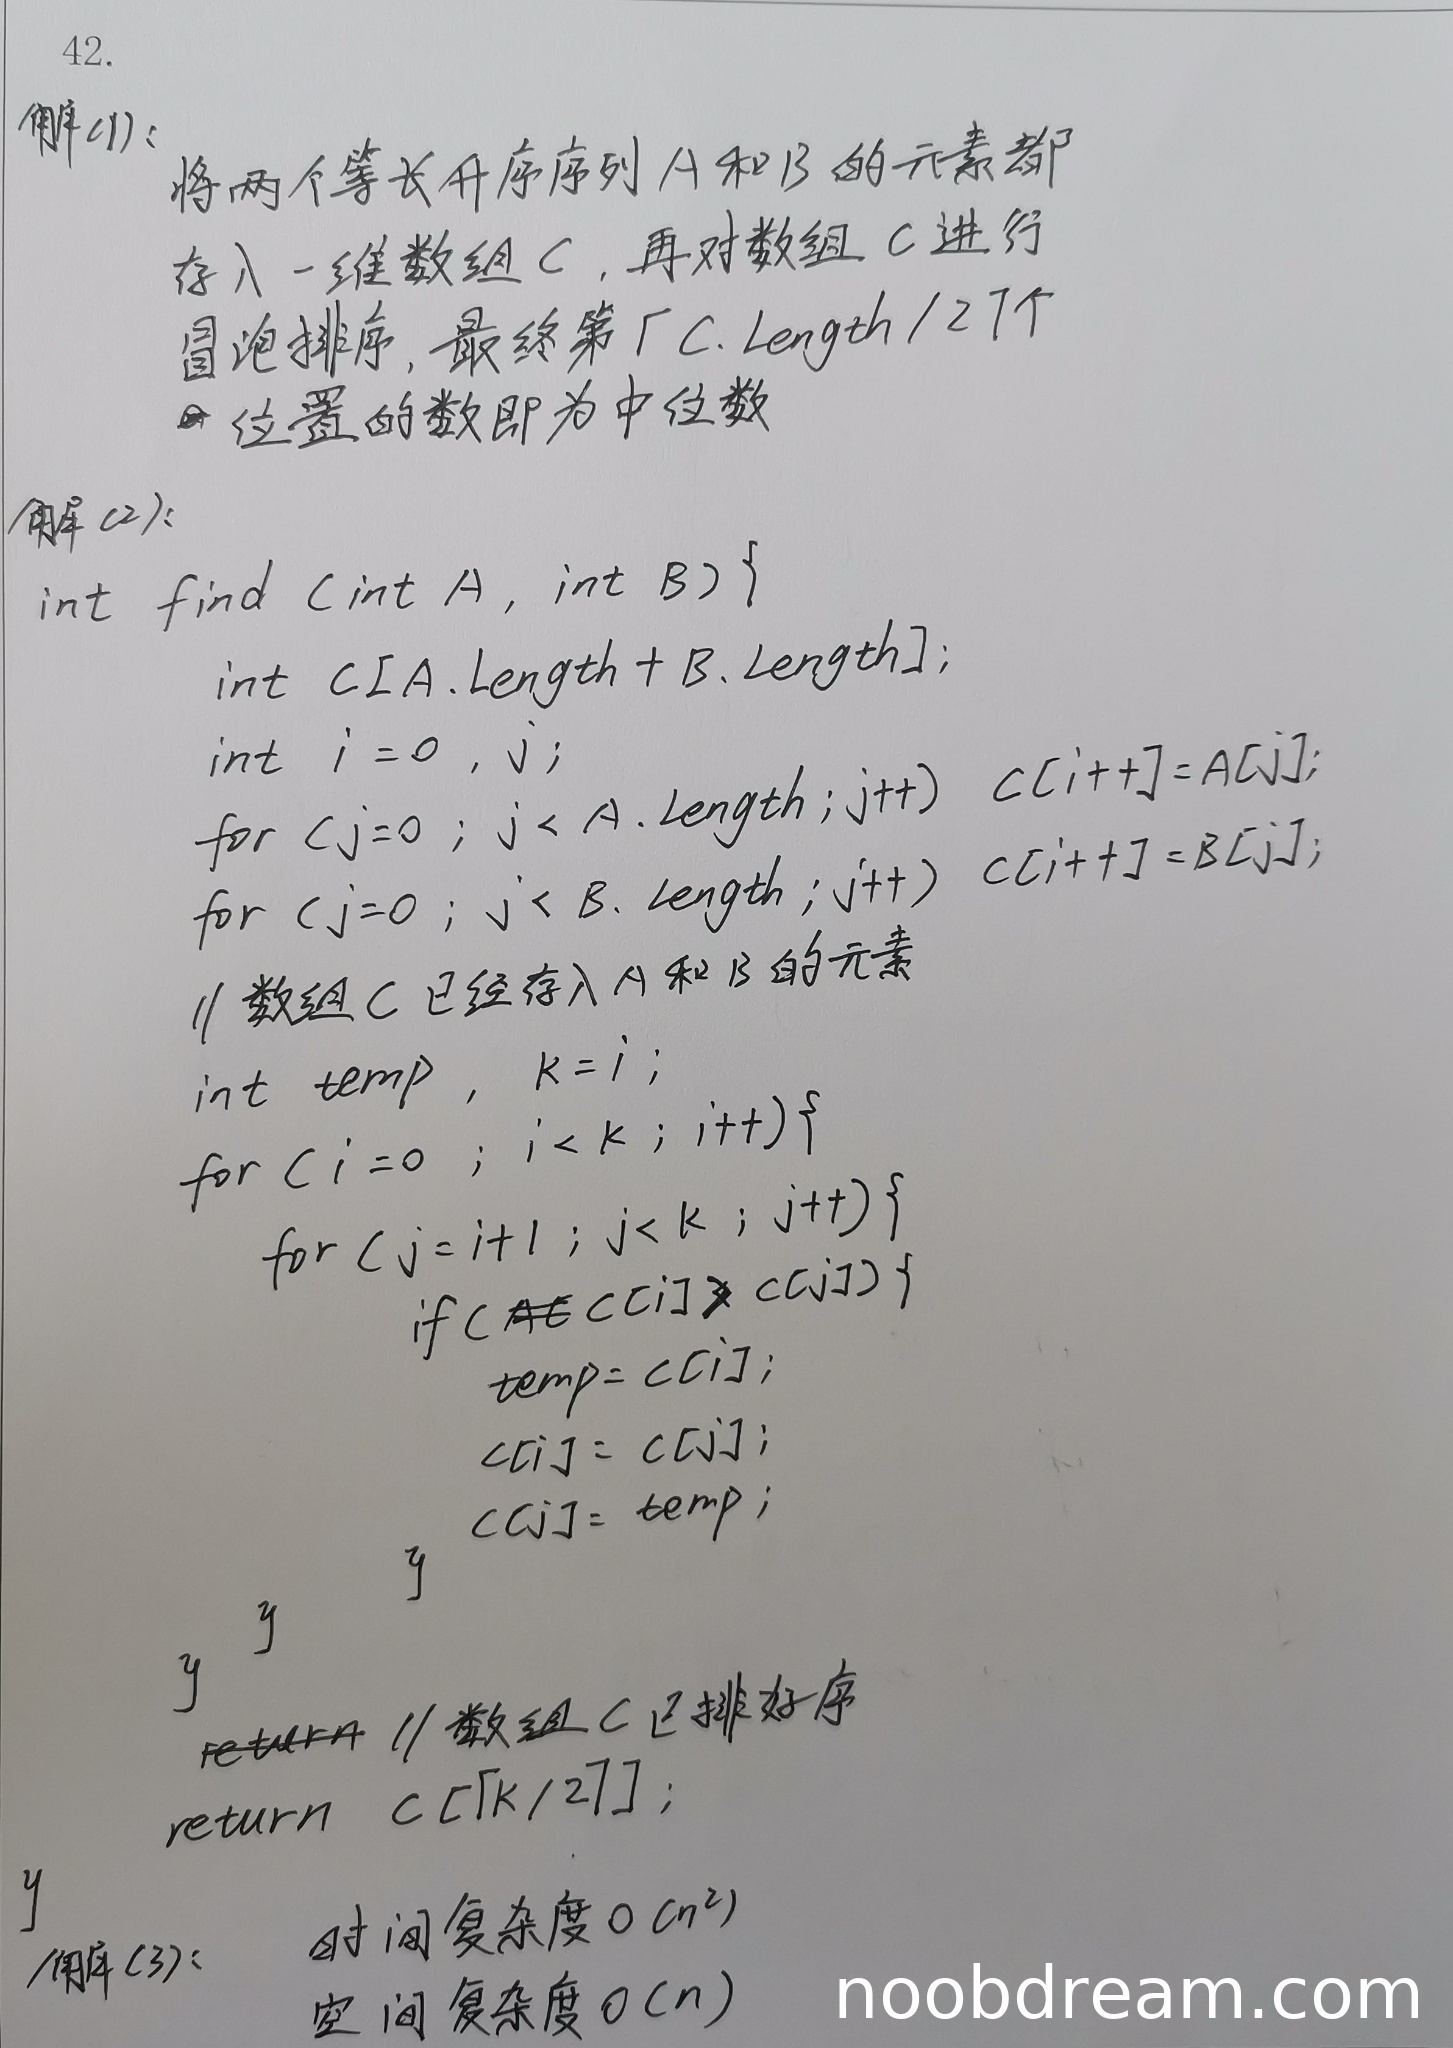 42.
解(1):
将两个等长升序序列A和B的元素都
存入一维数组C,再对数组C进行
冒泡排序,最终第⌈C.Length/2⌉个
位置的数即为中位数
解(2):
int find (int A, int B){
int C[A.Length+B.Length];
int i=0, j;
for (j=0; j<A.Length; j++) C[i++]=A[j];
for (j=0; j<B.Length; j++) C[i++]=B[j];
//数组C已经存入A和B的元素
int temp, k=i;
for (i=0; i<k; i++){
for (j=i+1; j<k; j++){
if (C[i]>C[j]){
temp=C[i];
C[i]=C[j];
C[j]=temp;
}
}
}
return //数组C已排好序
return C[⌈k/2⌉];
}
解(3): 时间复杂度O(n²)
空间复杂度O(n)
noobdream.com